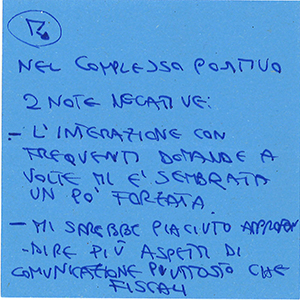 NEL COMPLESSO POSITIVO
2 NOTE NEGATIVE:
- L'INTERAZIONE CON
FREQUENTI DOMANDE A
VOLTE MI E' SEMBRATA
UN PO' FORZATA.
- MI SAREBBE PIACIUTO APPROFON
-DIRE PIÙ ASPETTI DI
COMUNICAZIONE PIUTTOSTO CHE
FISCALI